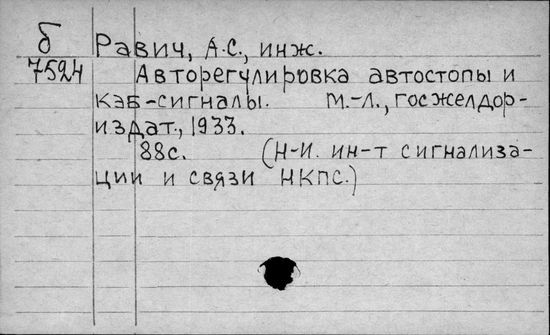 б Равич, А.С., инж.
7524 Авторегулировка автостопы и
кэб-сигналы. М.-Л., госжелдор-
издат., 1933.
88с. (Н-И. ин-т сигнализа-
ции и связи НКПС.)